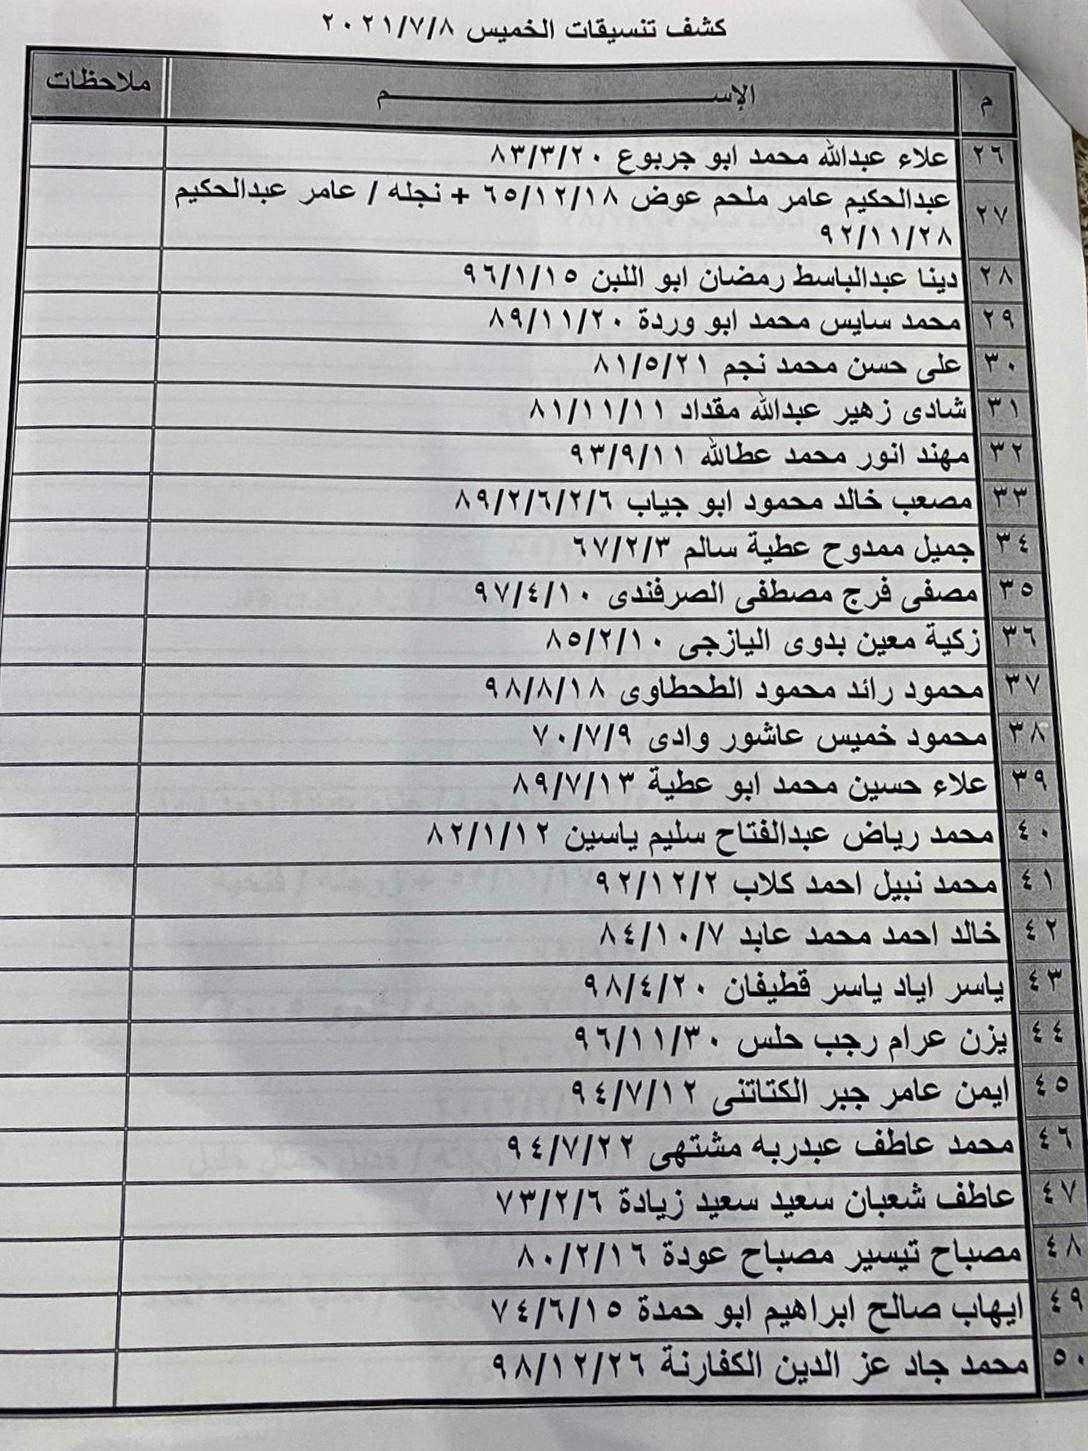 كشف تنسيقات الخميس ٢٠٢١/٧/٨
م الإســـــــم ملاحظات
٢٦ علاء عبدالله محمد ابو جربوع ٨٣/٣/٢٠
٢٧ عبدالحكيم عامر ملحم عوض ٦٥/١٢/١٨ + نجله / عامر عبدالحكيم
٩٢/١١/٢٨
٢٨ دينا عبدالباسط رمضان ابو اللبن ٩٦/١/١٥
٢٩ محمد سايس محمد ابو وردة ٨٩/١١/٢٠
٣٠ على حسن محمد نجم ٨١/٥/٢١
٣١ شادى زهير عبدالله مقداد ٨١/١١/١١
٣٢ مهند انور محمد عطالله ٩٣/٩/١١
٣٣ مصعب خالد محمود ابو جياب ٨٩/٢/٦/٢/٦
٣٤ جميل ممدوح عطية سالم ٦٧/٢/٣
٣٥ مصفى فرج مصطفى الصرفندى ٩٧/٤/١٠
٣٦ زكية معين بدوى اليازجى ٨٥/٢/١٠
٣٧ محمود رائد محمود الطحطاوى ٩٨/٨/١٨
٣٨ محمود خميس عاشور وادى ٧٠/٧/٩
٣٩ علاء حسين محمد ابو عطية ٨٩/٧/١٣
٤٠ محمد رياض عبدالفتاح سليم ياسين ٨٢/١/١٢
٤١ محمد نبيل احمد كلاب ٩٢/١٢/٢
٤٢ خالد احمد محمد عابد ٨٤/١٠/٧
٤٣ ياسر اياد ياسر قطيفان ٩٨/٤/٢٠
٤٤ يزن عرام رجب حلس ٩٦/١١/٣٠
٤٥ ايمن عامر جبر الكتاتنى ٩٤/٧/١٢
٤٦ محمد عاطف عبدربه مشتهى ٩٤/٧/٢٢
٤٧ عاطف شعبان سعيد سعيد زيادة ٧٣/٢/٦
٤٨ مصباح تيسير مصباح عودة ٨٠/٢/١٦
٤٩ ايهاب صالح ابراهيم ابو حمدة ٧٤/٦/١٥
٥٠ محمد جاد عز الدين الكفارنة ٩٨/١٢/٢٦